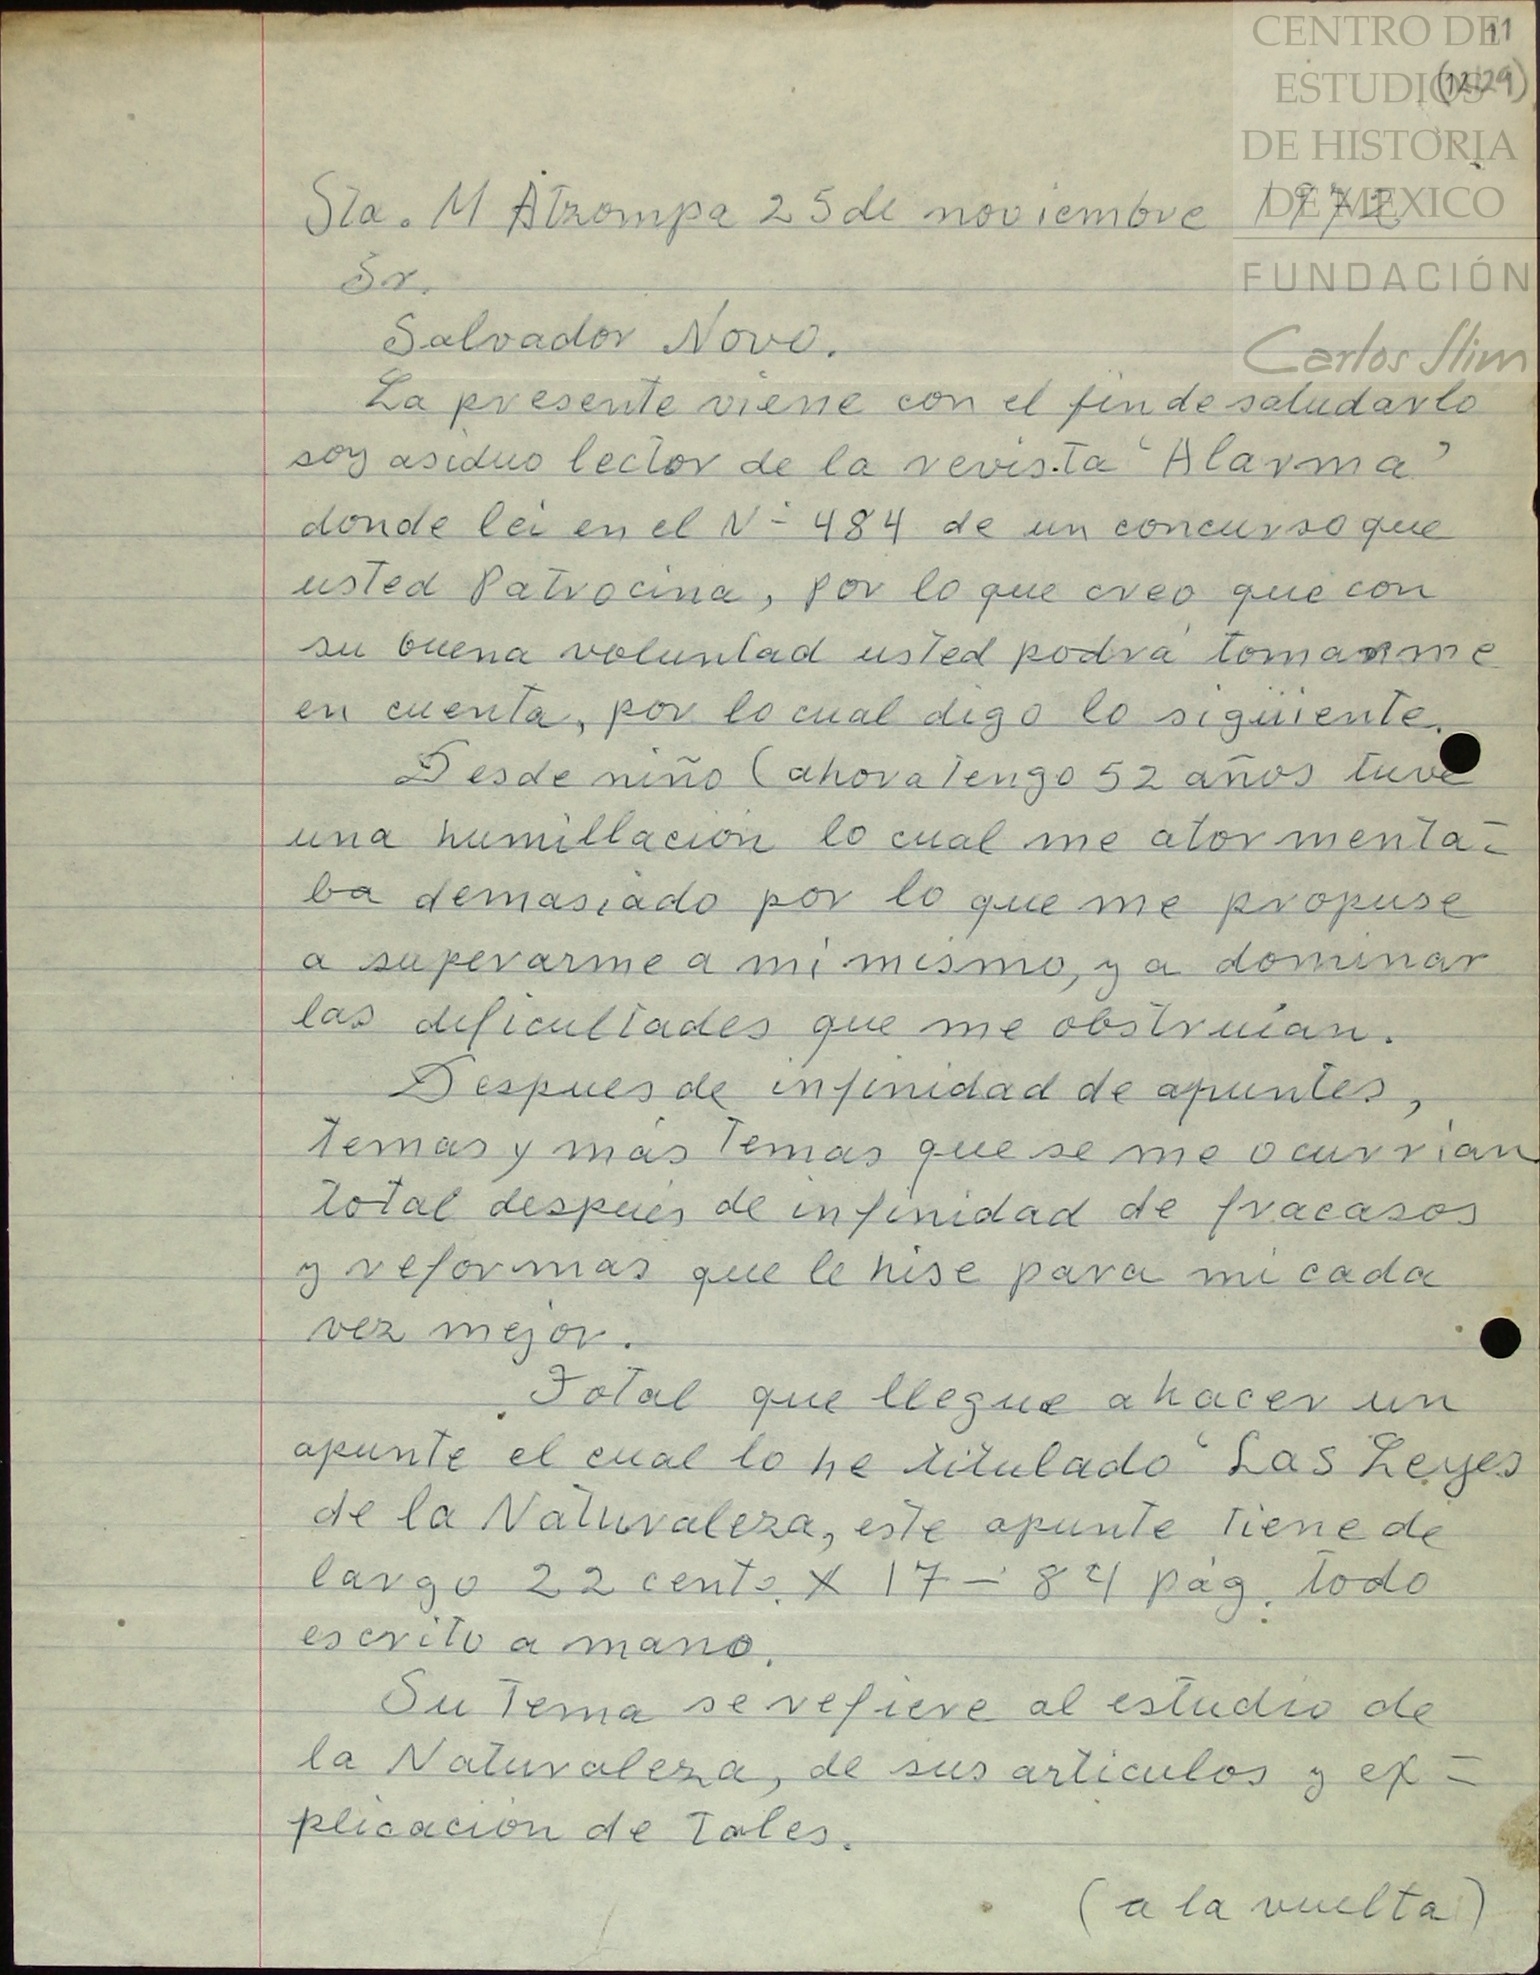 CENTRO DE
ESTUDIOS
DE HISTORIA
DE MEXICO
FUNDACIÓN
Carlos Slim
11
(12/29)
Sta. M Atzompa 25 de noviembre 1972
Sr.
Salvador Novo.
La presente viene con el fin de saludarlo
soy asiduo lector de la revista 'Alarma'
donde lei en el N- 484 de un concurso que
usted Patrocina, por lo que creo que con
su buena voluntad usted podrá tomarme
en cuenta, por lo cual digo lo sigüiente.
Desde niño (ahora tengo 52 años tuve
una humillación lo cual me atormenta-
ba demasiado por lo que me propuse
a superarme a mi mismo, y a dominar
las deficultades que me obstruian.
Despues de infinidad de apuntes,
temas y más temas que se me ocurrian
total después de infinidad de fracasos
y reformas que le hise para mi cada
vez mejor.
Total que llegue a hacer un
apunte el cual lo he titulado "Las Leyes
de la Naturaleza, este apunte tiene de
largo 22 cents. X 17 - 84 pág. todo
escrito a mano.
Su tema se refiere al estudio de
la Naturaleza, de sus articulos y ex-
plicación de tales.
(a la vuelta)